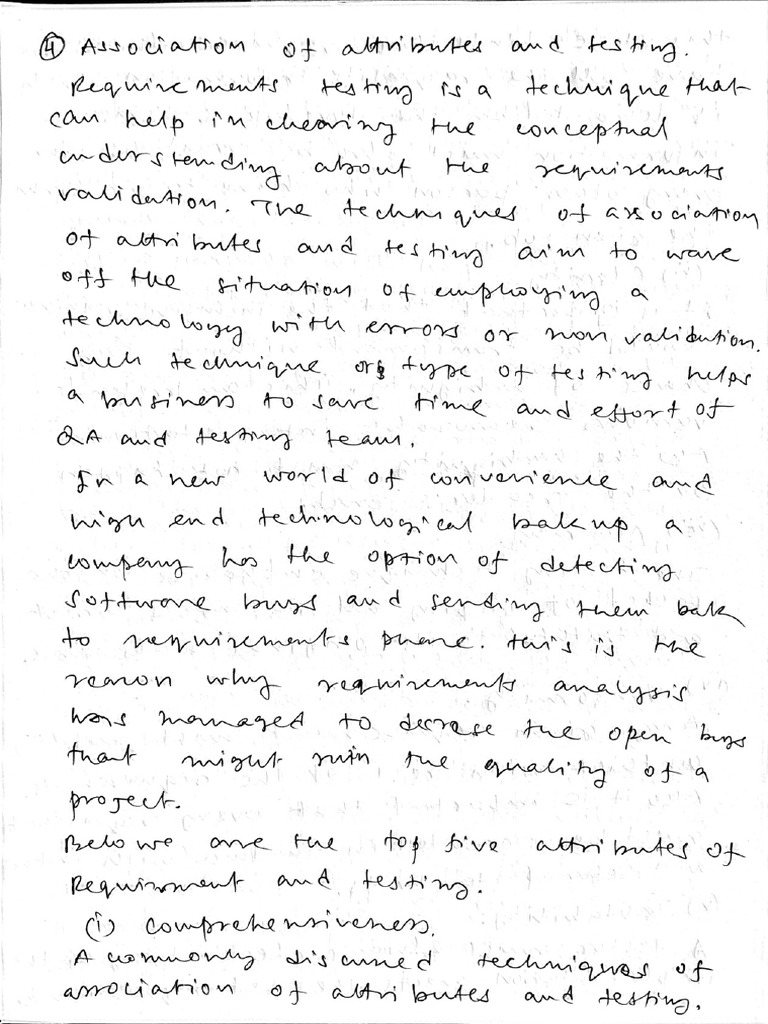 ④ Association of attributes and testing.
Requirements testing is a technique that
can help in clearing the conceptual
understanding about the requirements
validation. The techniques of association
of attributes and testing aim to wave
off the situation of employing a
technology with errors or non validation.
Such technique or type of testing helps
a business to save time and effort of
QA and testing team.
In a new world of convenience and
high end technological bakup a
company has the option of detecting
software bugs and sending them bak
to requirements phase. This is the
reason why requirements analysis
has managed to decrese the open bugs
that might ruin the quality of a
project.
Below are the top five attributes of
Requirment and testing.
(i) comprehensiveness.
A commonly discussed techniques of
association of attributes and testing.